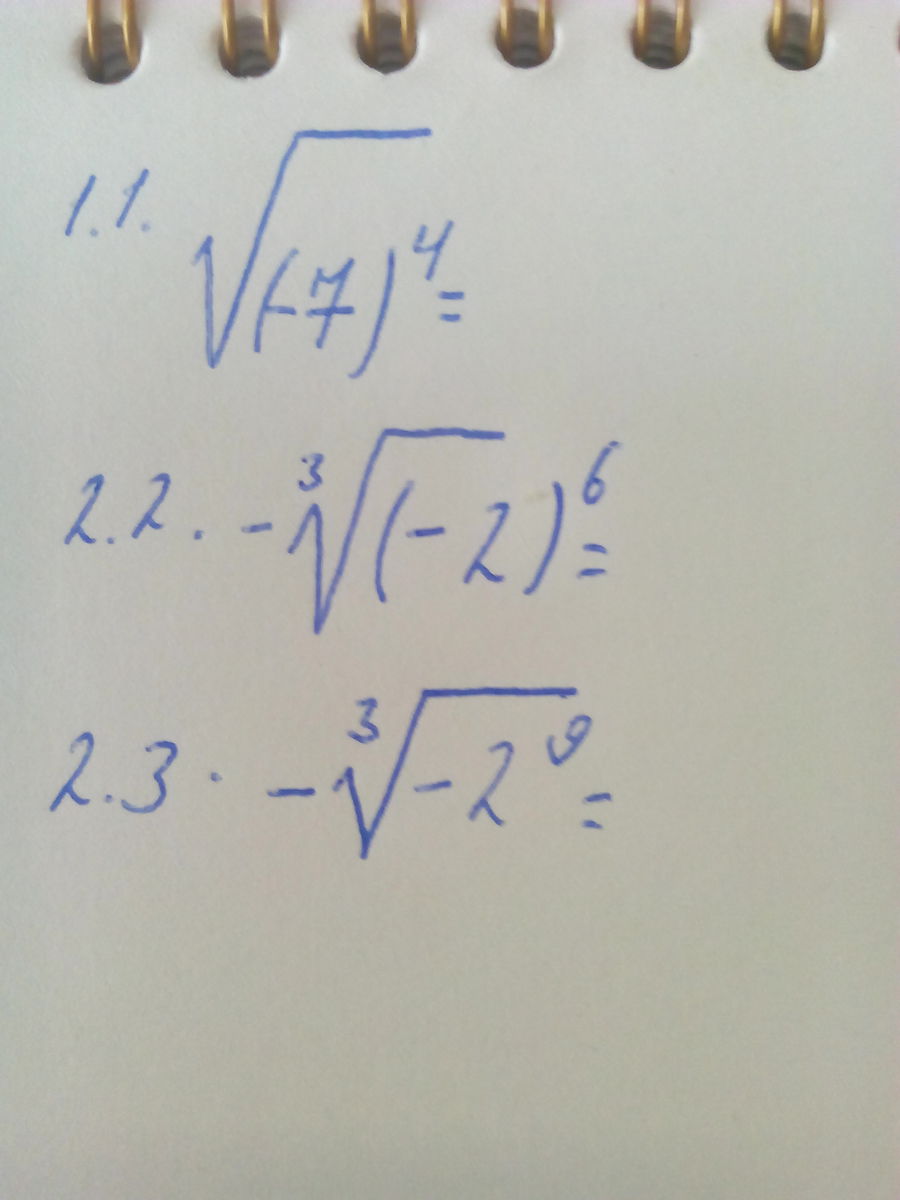 1.1. √(-7)⁴=
2.2. -³√(-2)⁶=
2.3. -³√-2⁹=